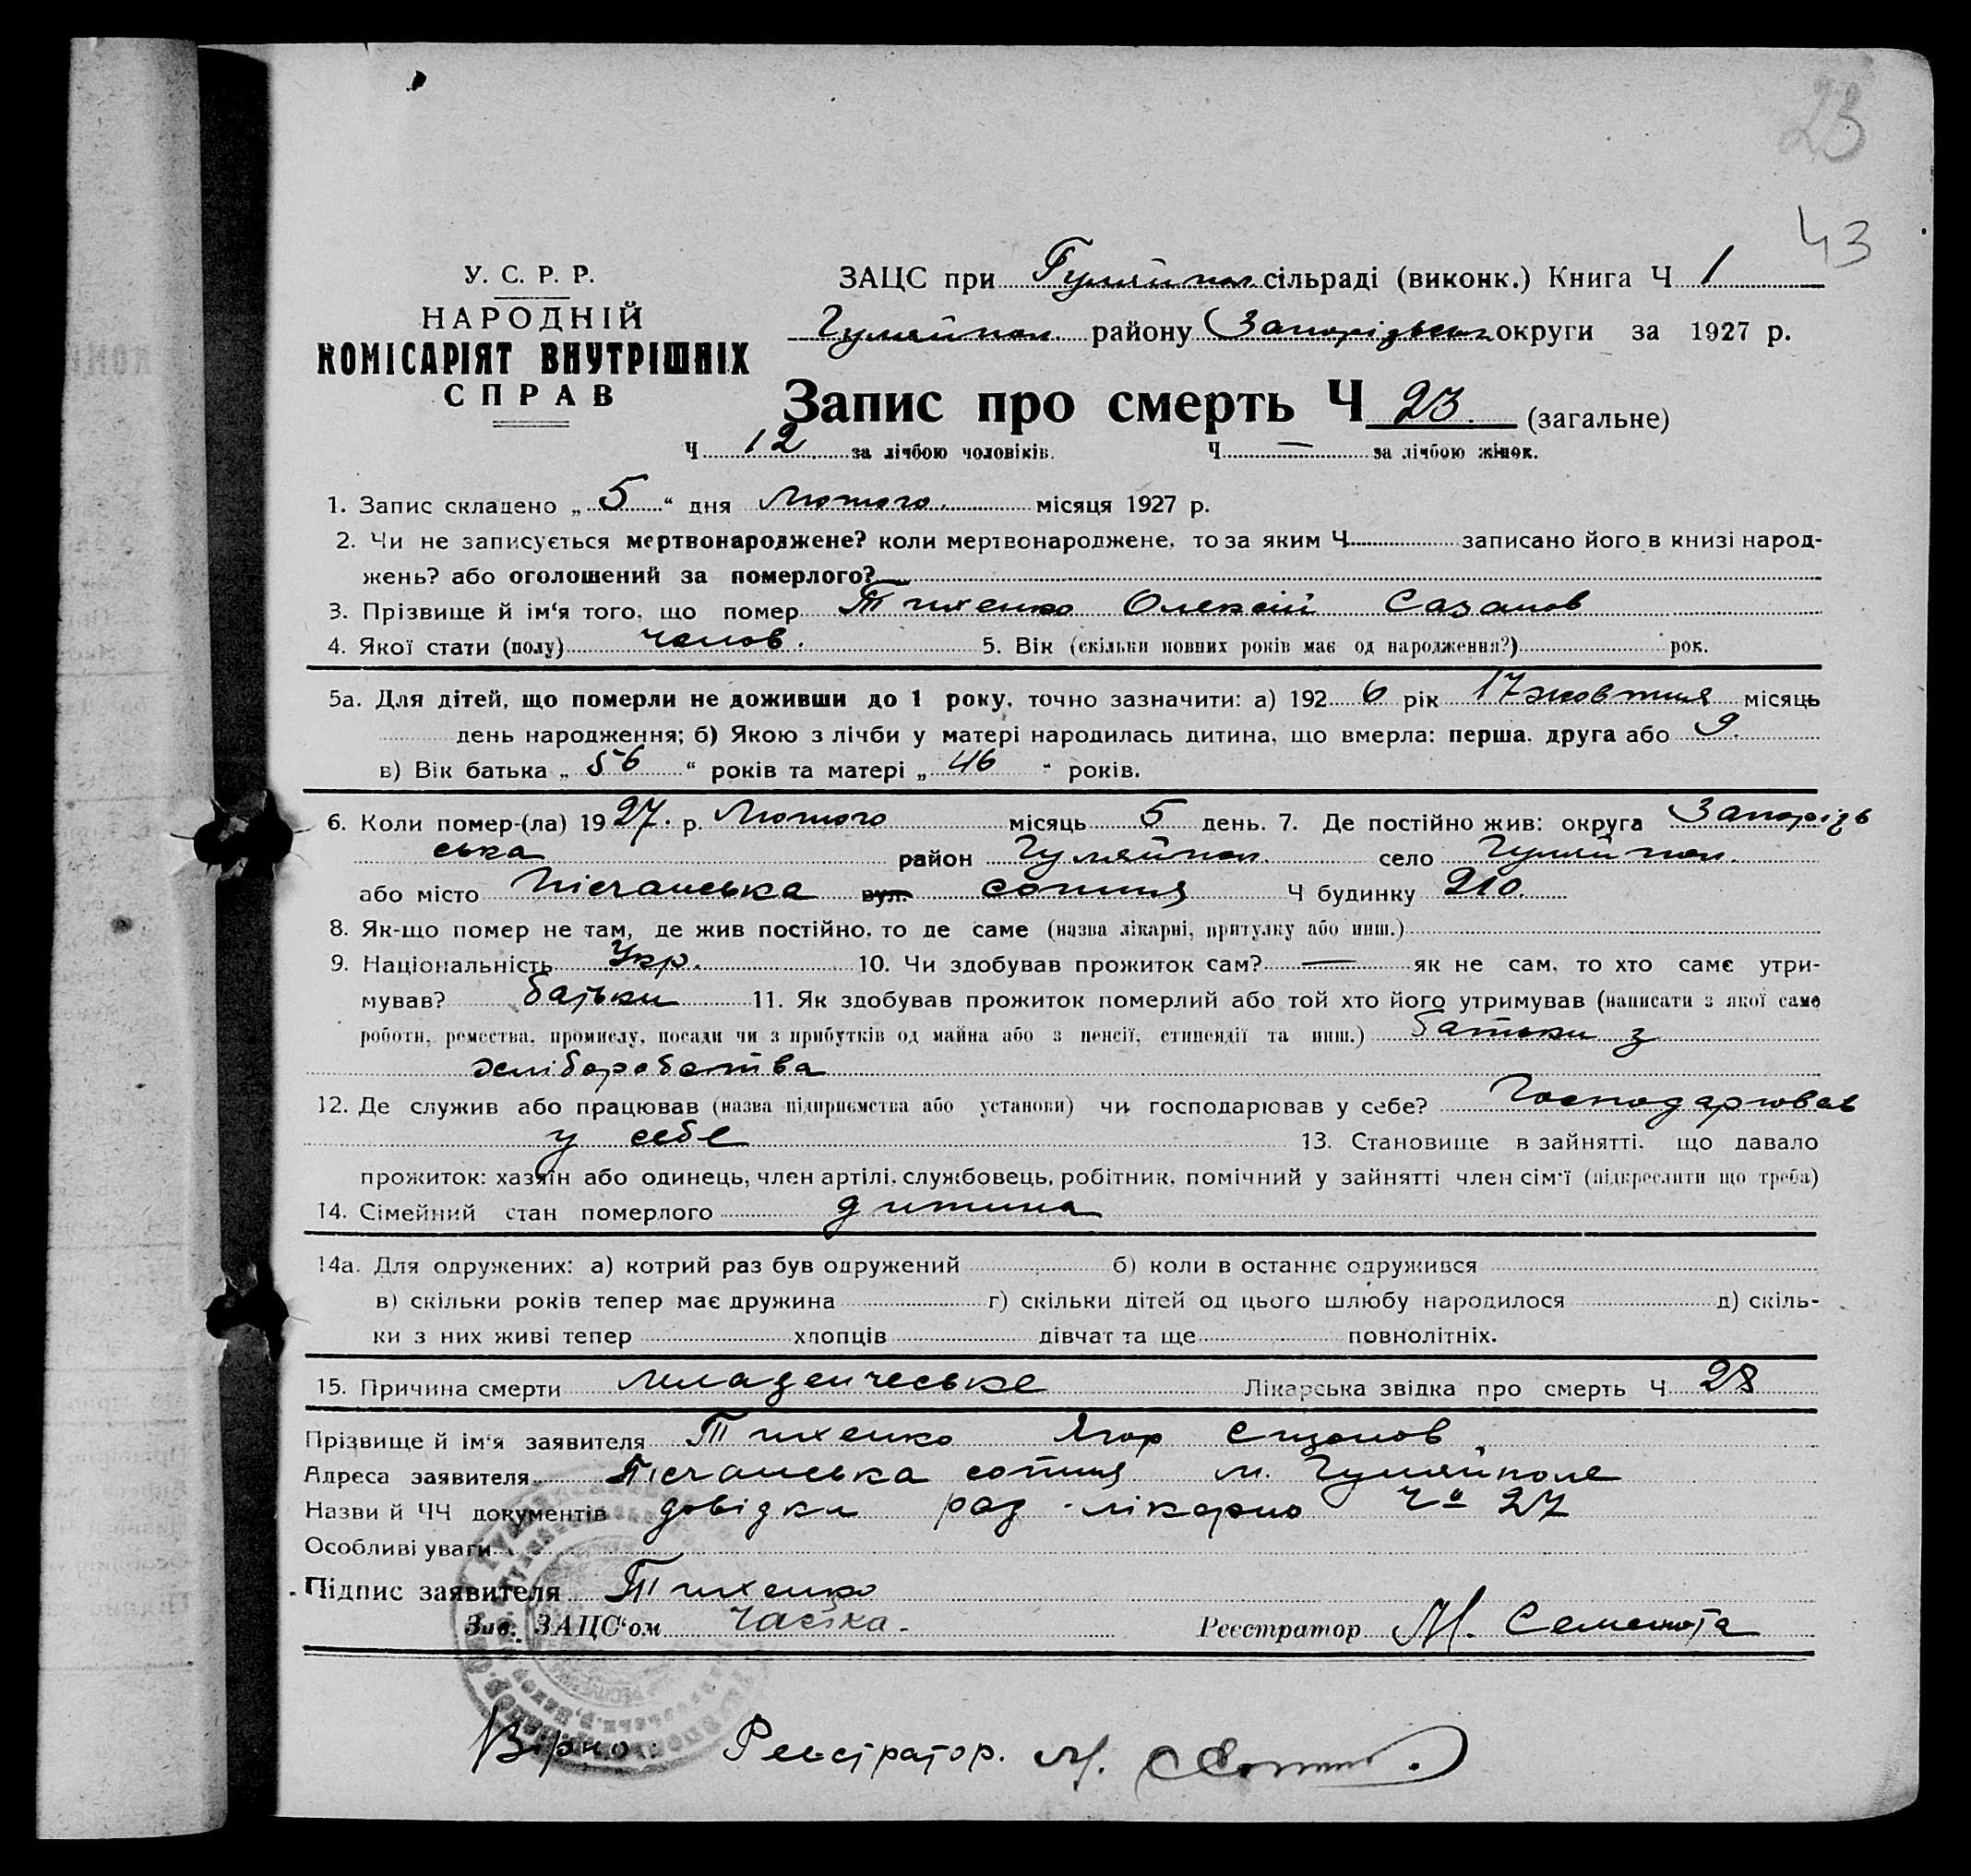 23
43
У. С. Р. Р.
НАРОДНІЙ
КОМІСАРІЯТ ВНУТРІШНІХ
СПРАВ
ЗАЦС при Гуляйпол. сільраді (виконк.) Книга Ч 1
Гуляйпол. району Запорізьк. округи за 1927 р.
Запис про смерть Ч 23. (загальне)
Ч 12 за лічбою чоловіків. Ч — за лічбою жінок.
1. Запис складено „ 5 “ дня Лютого. місяця 1927 р.
2. Чи не записується мертвонароджене? коли мертвонароджене, то за яким Ч записано його в книзі народ-
жень? або оголошений за померлого? —
3. Прізвище й ім‘я того, що помер Тихенко Олексій Сазонов
4. Якої стати (полу) чолов. 5. Вік (скільки повних років має од народження?) рок.
5а. Для дітей, що померли не доживши до 1 року, точно зазначити: а) 192 6 рік 17 жовтня місяць
день народження; б) Якою з лічби у матері народилась дитина, що вмерла: перша, друга або 9.
в) Вік батька „ 56 “ років та матері „ 46 “ років.
6. Коли помер-(ла) 19 27. р. Лютого місяць 5 день. 7. Де постійно жив: округа Запоріз
ська район Гуляйпол. село Гуляйпол.
або місто Пісчанська вул. сотня Ч будинку 210.
8. Як-що помер не там, де жив постійно, то де саме (назва лікарні, притулку або инш.)
9. Національність Укр. 10. Чи здобував прожиток сам? — як не сам, то хто саме утри-
мував? батьки 11. Як здобував прожиток померлий або той хто його утримував (написати з якої саме
роботи, ремества, промислу, посади чи з прибутків од майна або з пенсії, стипендії та инш.) батьки з
хліборобства
12. Де служив або працював (назва підприємства або установи) чи господарював у себе? Господарював
у себе 13. Становище в зайнятті, що давало
прожиток: хазяїн або одинець, член артілі, службовець, робітник, помічний у зайнятті член сім‘ї (підкреслити що треба)
14. Сімейний стан померлого дитина
14а. Для одружених: а) котрий раз був одружений б) коли в останнє одружився
в) скільки років тепер має дружина г) скільки дітей од цього шлюбу народилося д) скіль-
ки з них живі тепер хлопців дівчат та ще повнолітніх.
15. Причина смерти младенческе Лікарська звідка про смерть Ч 28
Прізвище й ім‘я заявителя Тихенко Ягор
Адреса заявителя Пісчанська сотня м. Гуляйполе
Назви й ЧЧ документів довідки рад-лікарю Ч 27
Особливі уваги
Підпис заявителя Тихенко
Зав. ЗАЦС‘ом Реєстратор М. Семенота
Вірно: Реєстратор. М.